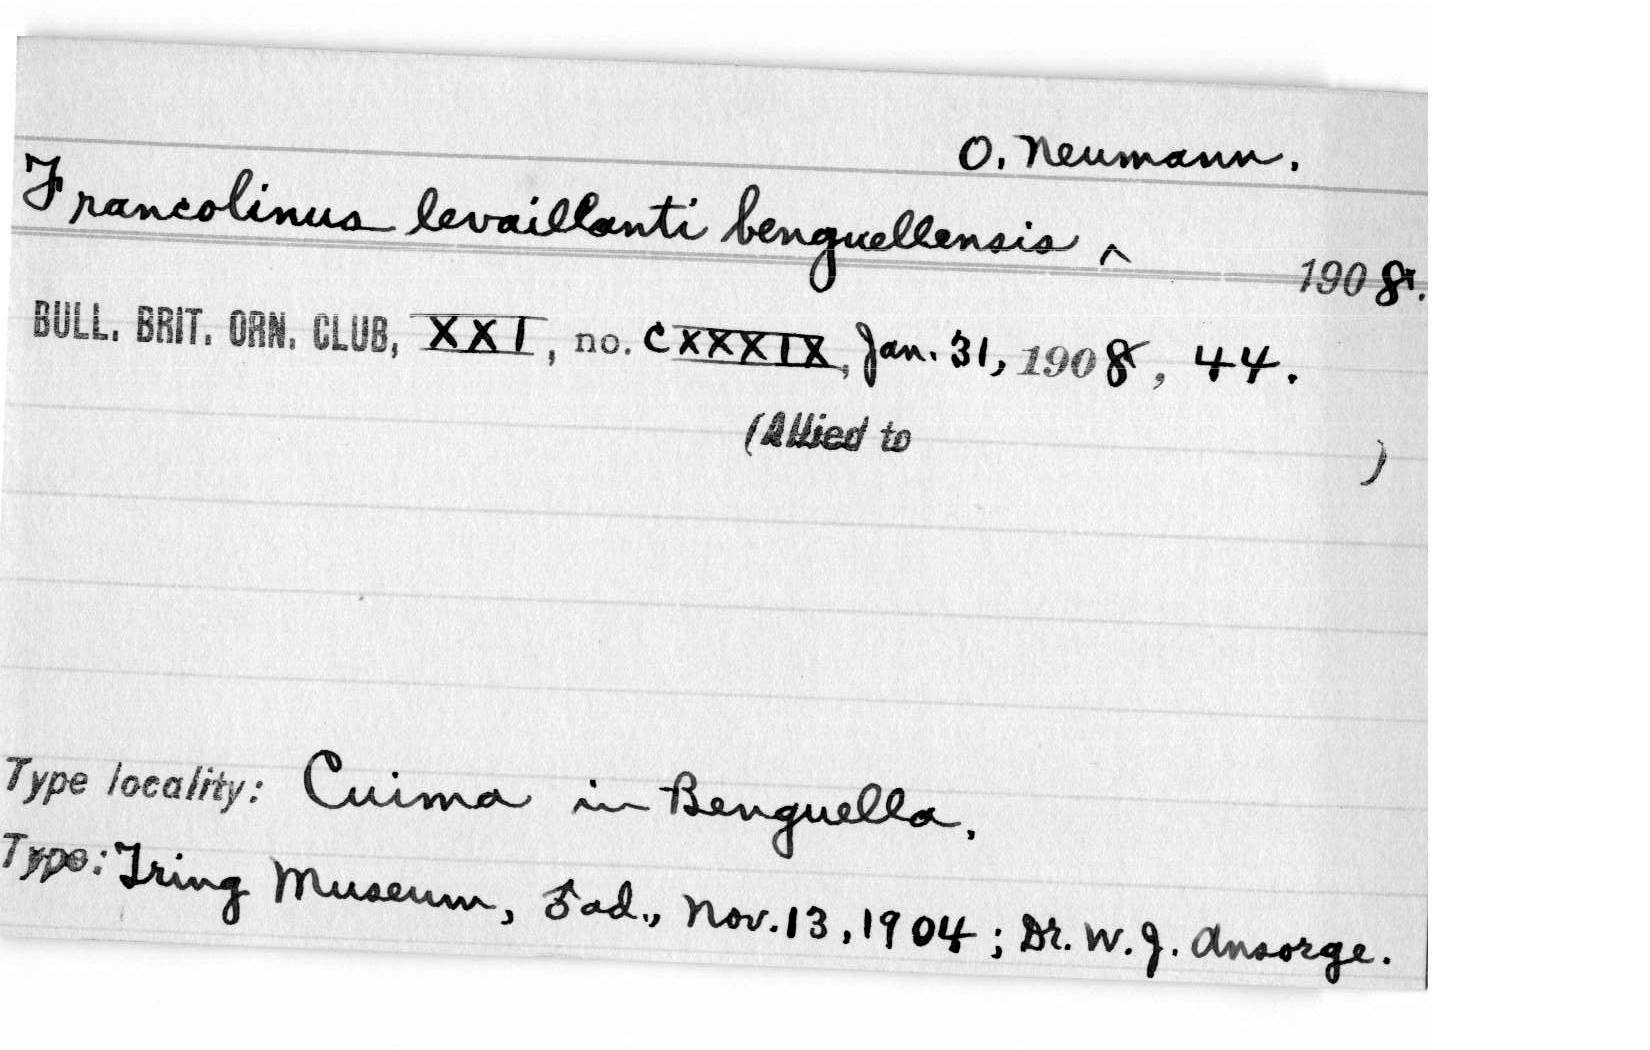 O. Neumann.
Francolinus levaillanti benguellensis ^ 1908.
BULL. BRIT. ORN. CLUB, XXI, no. CXXXIX, Jan. 31, 1908, 44.
(Allied to )
Type locality: Cuima in Benguella.
Type: Tring Museum, ♂ ad., Nov. 13, 1904; Dr. W. J. Ansorge.